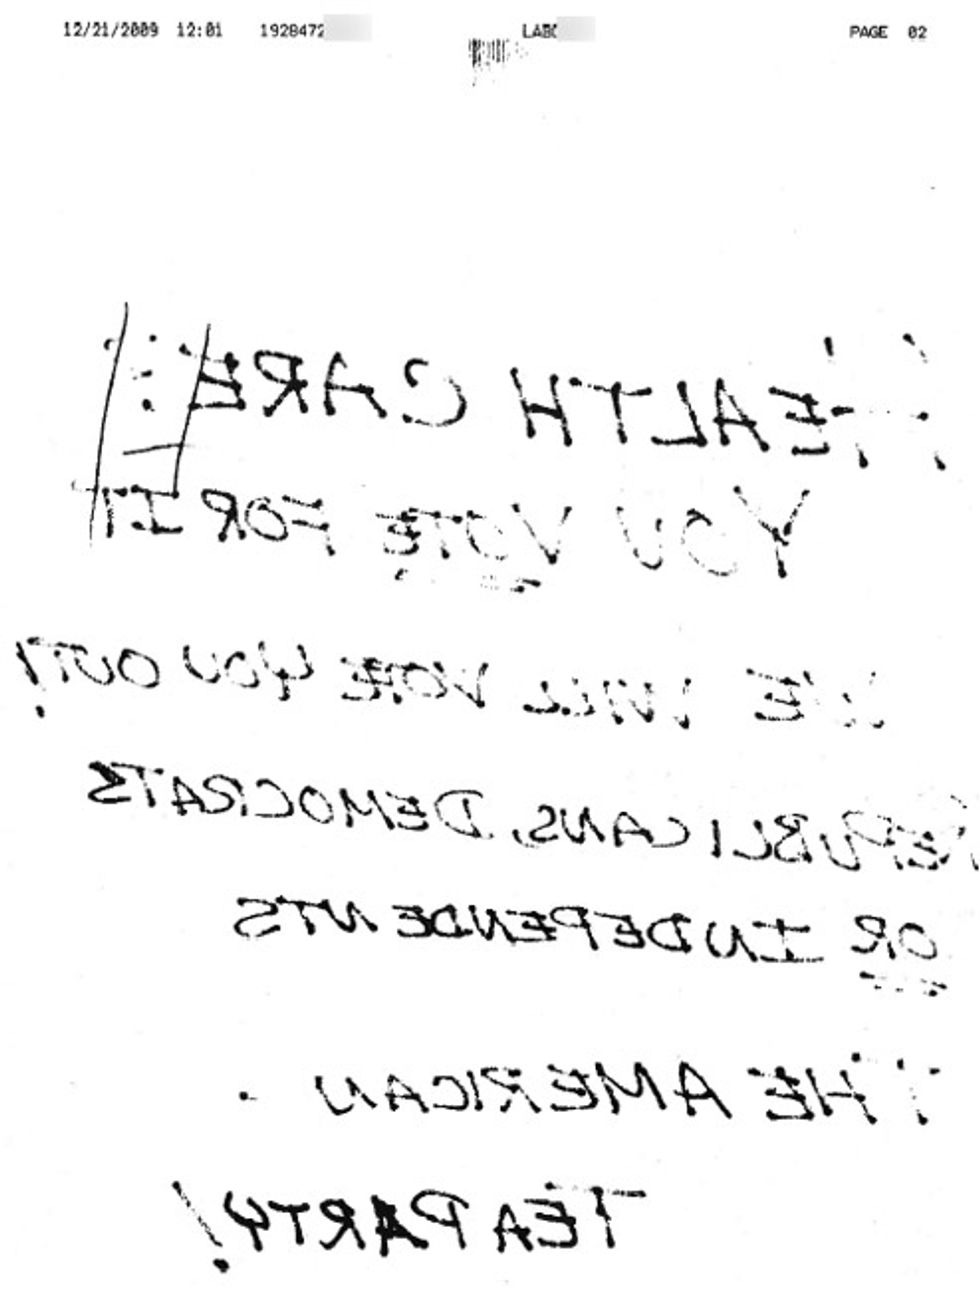 12/21/2009 12:01 1928472 LABC PAGE 02
HEALTH CARE!!
YOU VOTE FOR IT
WE WILL VOTE YOU OUT!
REPUBLICANS, DEMOCRATS
OR INDEPENDENTS
THE AMERICAN
TEA PARTY!